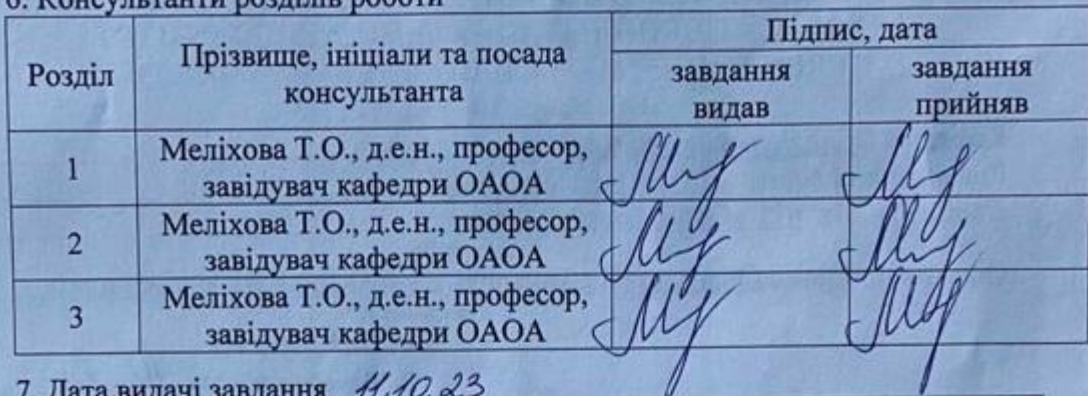 6. Консультанти розділів роботи
Розділ
Прізвище, ініціали та посада
консультанта
Підпис, дата
завдання
видав
завдання
прийняв
1
Меліхова Т.О., д.е.н., професор,
завідувач кафедри ОАОА
2
Меліхова Т.О., д.е.н., професор,
завідувач кафедри ОАОА
3
Меліхова Т.О., д.е.н., професор,
завідувач кафедри ОАОА
7. Дата видачі завдання 11.10.23